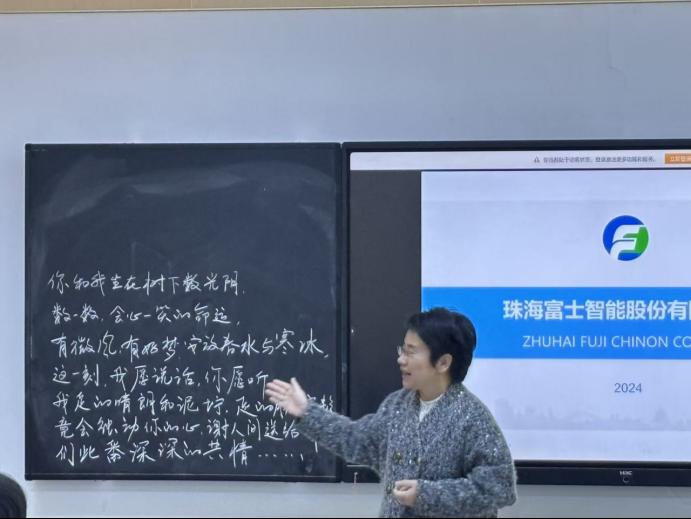 你和我坐在树下数光阴,
数一数,会心一笑的命运,
有微光,有好梦,安放春水与寒冰,
这一刻,我愿说话,你愿听
我走的晴朗和泥泞,走的
竟会触动你的心,谢人间送给
们此番深深的共情……
立即登录
珠海富士智能股份有
ZHUHAI FUJI CHINON CO
2024